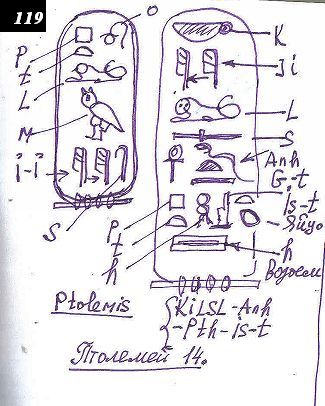 119
O
P
t
L
M
i-i
S
K
Ji
L
S
Anh
G.-t
Is-t
Яйцо
P
t
h
h
Водоем
Ptolemis
KiLSL-Anh
-Pth-is-t
Птолемей 14.